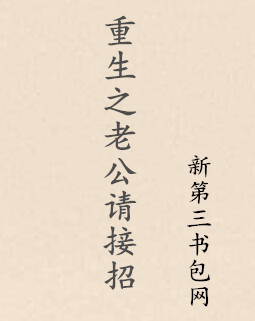 重生之老公请接招
新第三书包网